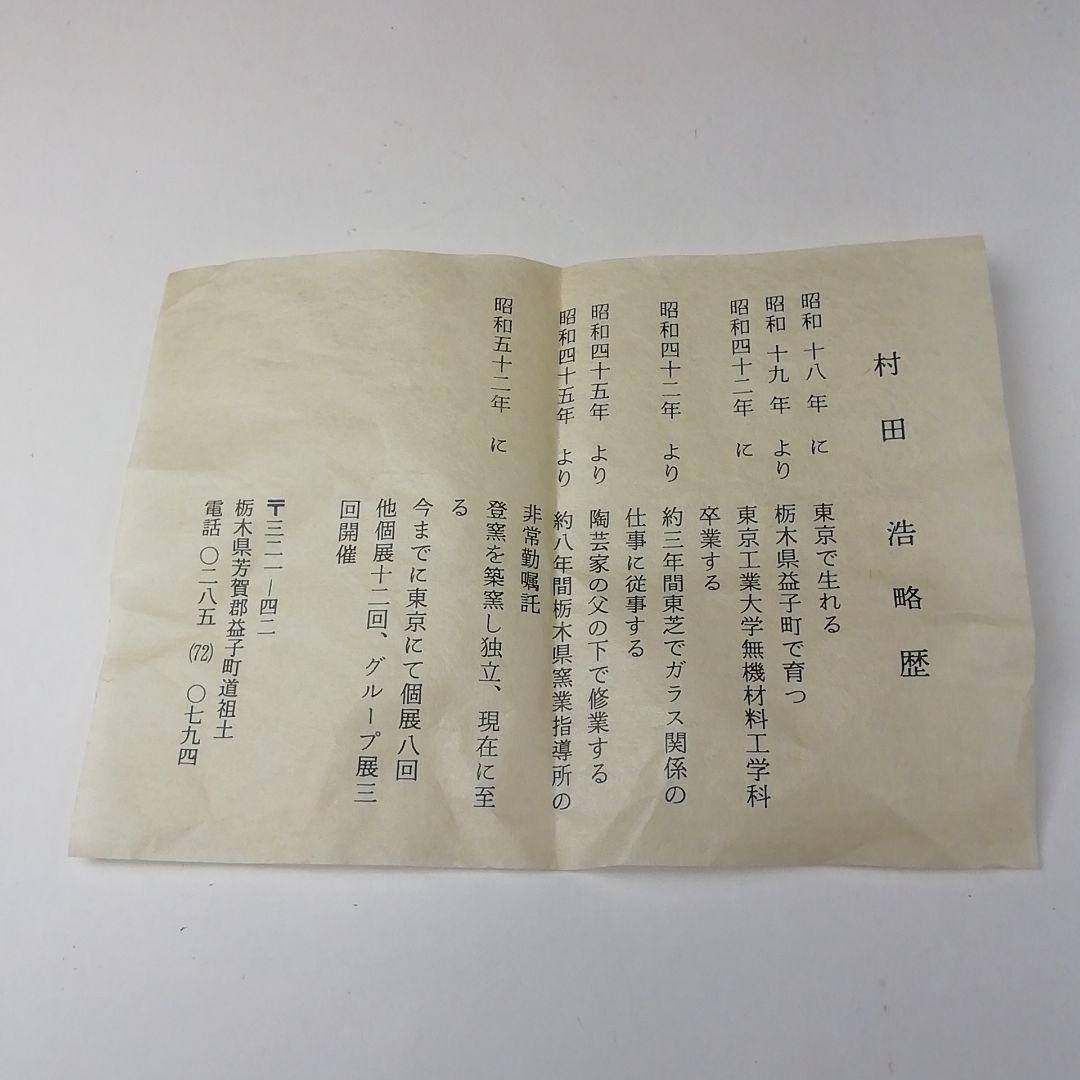 村田浩略歴
昭和十八年に 東京で生れる
昭和十九年より 栃木県益子町で育つ
昭和四十二年に 東京工業大学無機材料工学科
卒業する
昭和四十二年より 約三年間東芝でガラス関係の
仕事に従事する
昭和四十五年より 陶芸家の父の下で修業する
昭和四十五年より 約八年間栃木県窯業指導所の
非常勤嘱託
昭和五十二年に 登窯を築窯し独立、現在に至
る
今までに東京にて個展八回
他個展十二回、グループ展三
回開催
〒三二一―四二
栃木県芳賀郡益子町道祖土
電話 〇二八五(72)〇七九四